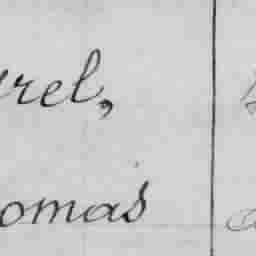 rel,
omas